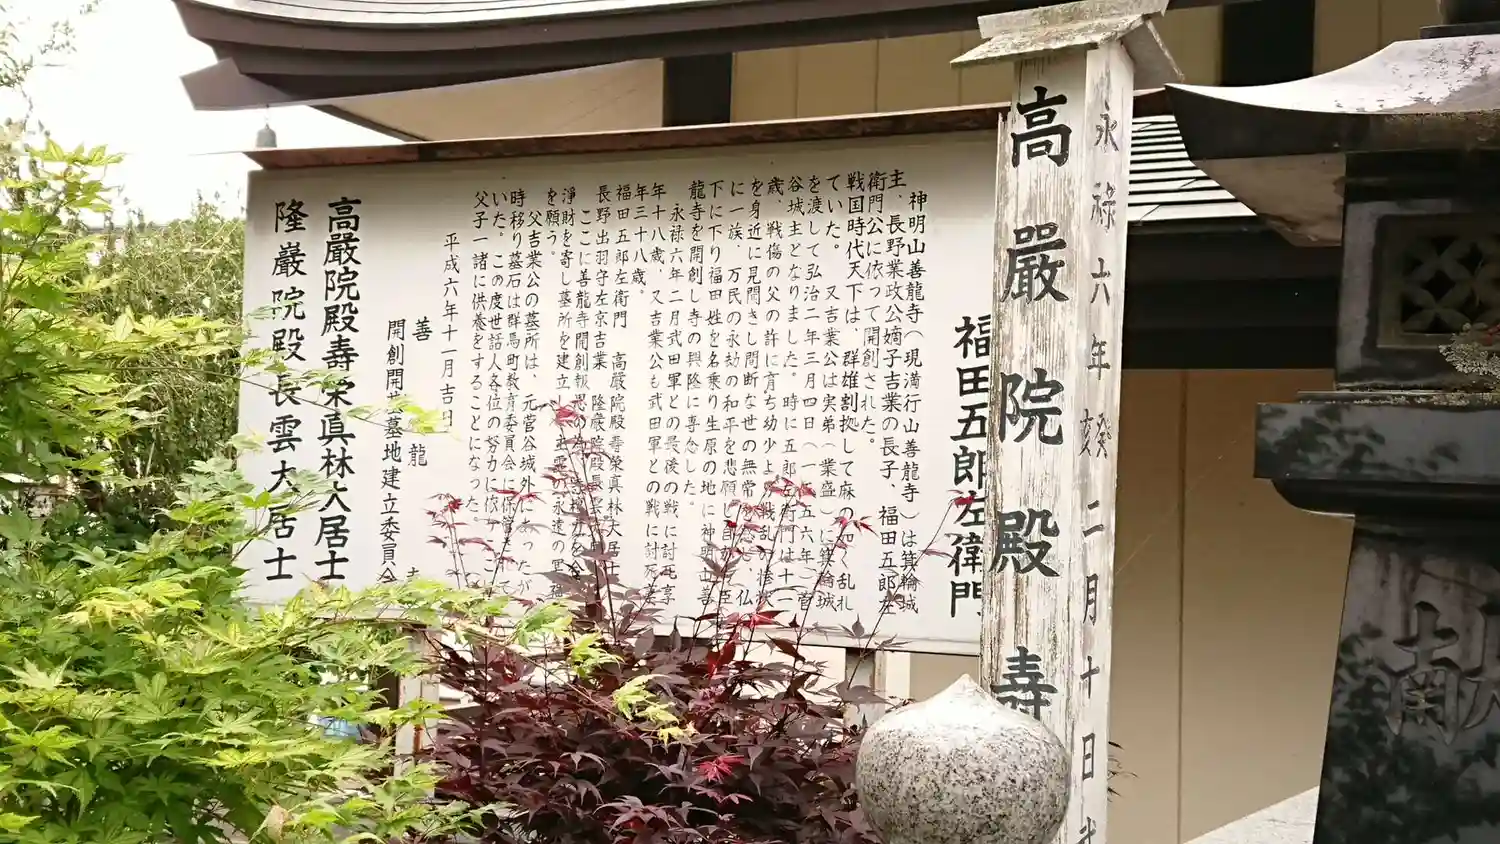 永禄六年癸亥二月十日
高嚴院殿壽
福田五郎左衛門
神明山善龍寺(現満行山善龍寺)は箕輪城
主、長野業政公嫡子吉業の長子、福田五郎左
衛門公に依って開創された。
戦国時代天下は、群雄割拠して麻の如く乱れ
ていた。又吉業公は実弟(業盛)に箕輪城
を渡して弘治二年三月四日(一五五六年)菅
谷城主となりました。時に五郎左衛門は十二
歳、戦傷の父の許に育ち幼少より戦乱の
を身近に見聞きし間断な世の無常
に一族、万民の永劫の和平を悲願し
下に下り福田姓を名乗り生原の地に神明山善
龍寺を開創し寺の興隆に専念した。
永禄六年二月武田軍との最後の戦に討死享
年十八歳、又吉業公も武田軍との戦に討死
年三十八歳。
福田五郎左衛門 高厳院殿壽榮真林大居士
長野出羽守左京吉業 隆厳院殿長雲
ここに善龍寺開創報恩の為
淨財を寄し墓所を建立 永遠の
を願う。
父吉業公の墓所は、元菅谷城外にあったが
時移り墓石は群馬町教育委員会に保管
いた。この度世話人各位の努力に依
父子一諸に供養をすることになった。
平成六年十一月吉日
善龍
開創開基墓地建立委員会
高嚴院殿壽栄真林大居士
隆巖院殿長雲大居士
献